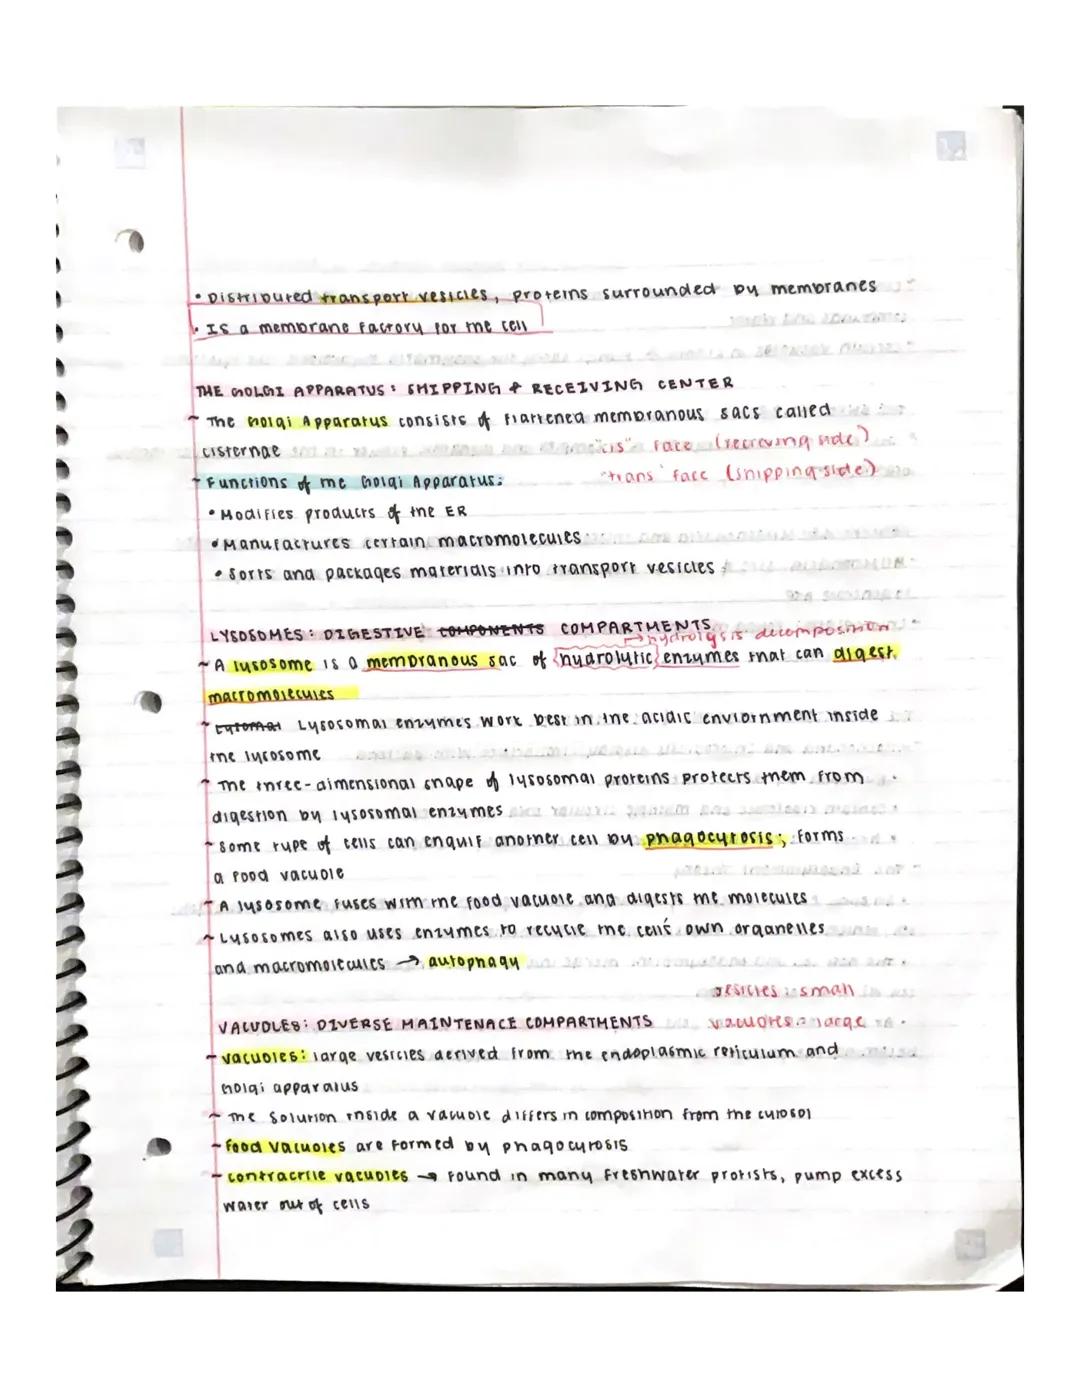 • Distributed transport vesicles, proteins surrounded by membranes
• Is a membrane factory for the cell
THE GOLGI APPARATUS: SHIPPING & RECEIVING CENTER
~ The Golgi Apparatus consists of flattened membranous sacs called
cisternae
"cis" face (recieving side)
"trans" face (shipping side)
~ Functions of the Golgi Apparatus:
• Modifies products of the ER
• Manufactures certain macromolecules
• Sorts and packages materials into transport vesicles
LYSOSOMES: DIGESTIVE COMPONENTS COMPARTMENTS
→ hydrolysis decomposition
~ A lysosome is a membranous sac of hydrolytic enzymes that can digest
macromolecules
~ Lysosomal enzymes work best in the acidic enviornment inside
the lysosome
~ The three-dimensional shape of lysosomal proteins protects them from
digestion by lysosomal enzymes
~ Some type of cells can engulf another cell by phagocytosis; forms
a food vacuole
~ A lysosome fuses with the food vacuole and digests the molecules
~ Lysosomes also uses enzymes to recycle the cell's own organelles
and macromolecules → autophagy
vesicles = small
VACUOLES: DIVERSE MAINTENACE COMPARTMENTS
vacuoles = large
~ Vacuoles: large vesicles derived from the endoplasmic reticulum and
Golgi apparatus
~ The solution inside a vacuole differs in composition from the cytosol
~ Food vacuoles are formed by phagocytosis
~ contractile vacuoles → found in many freshwater protists, pump excess
water out of cells